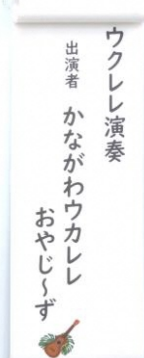 ウクレレ演奏
出演者 かながわウカレレ
おやじ～ず